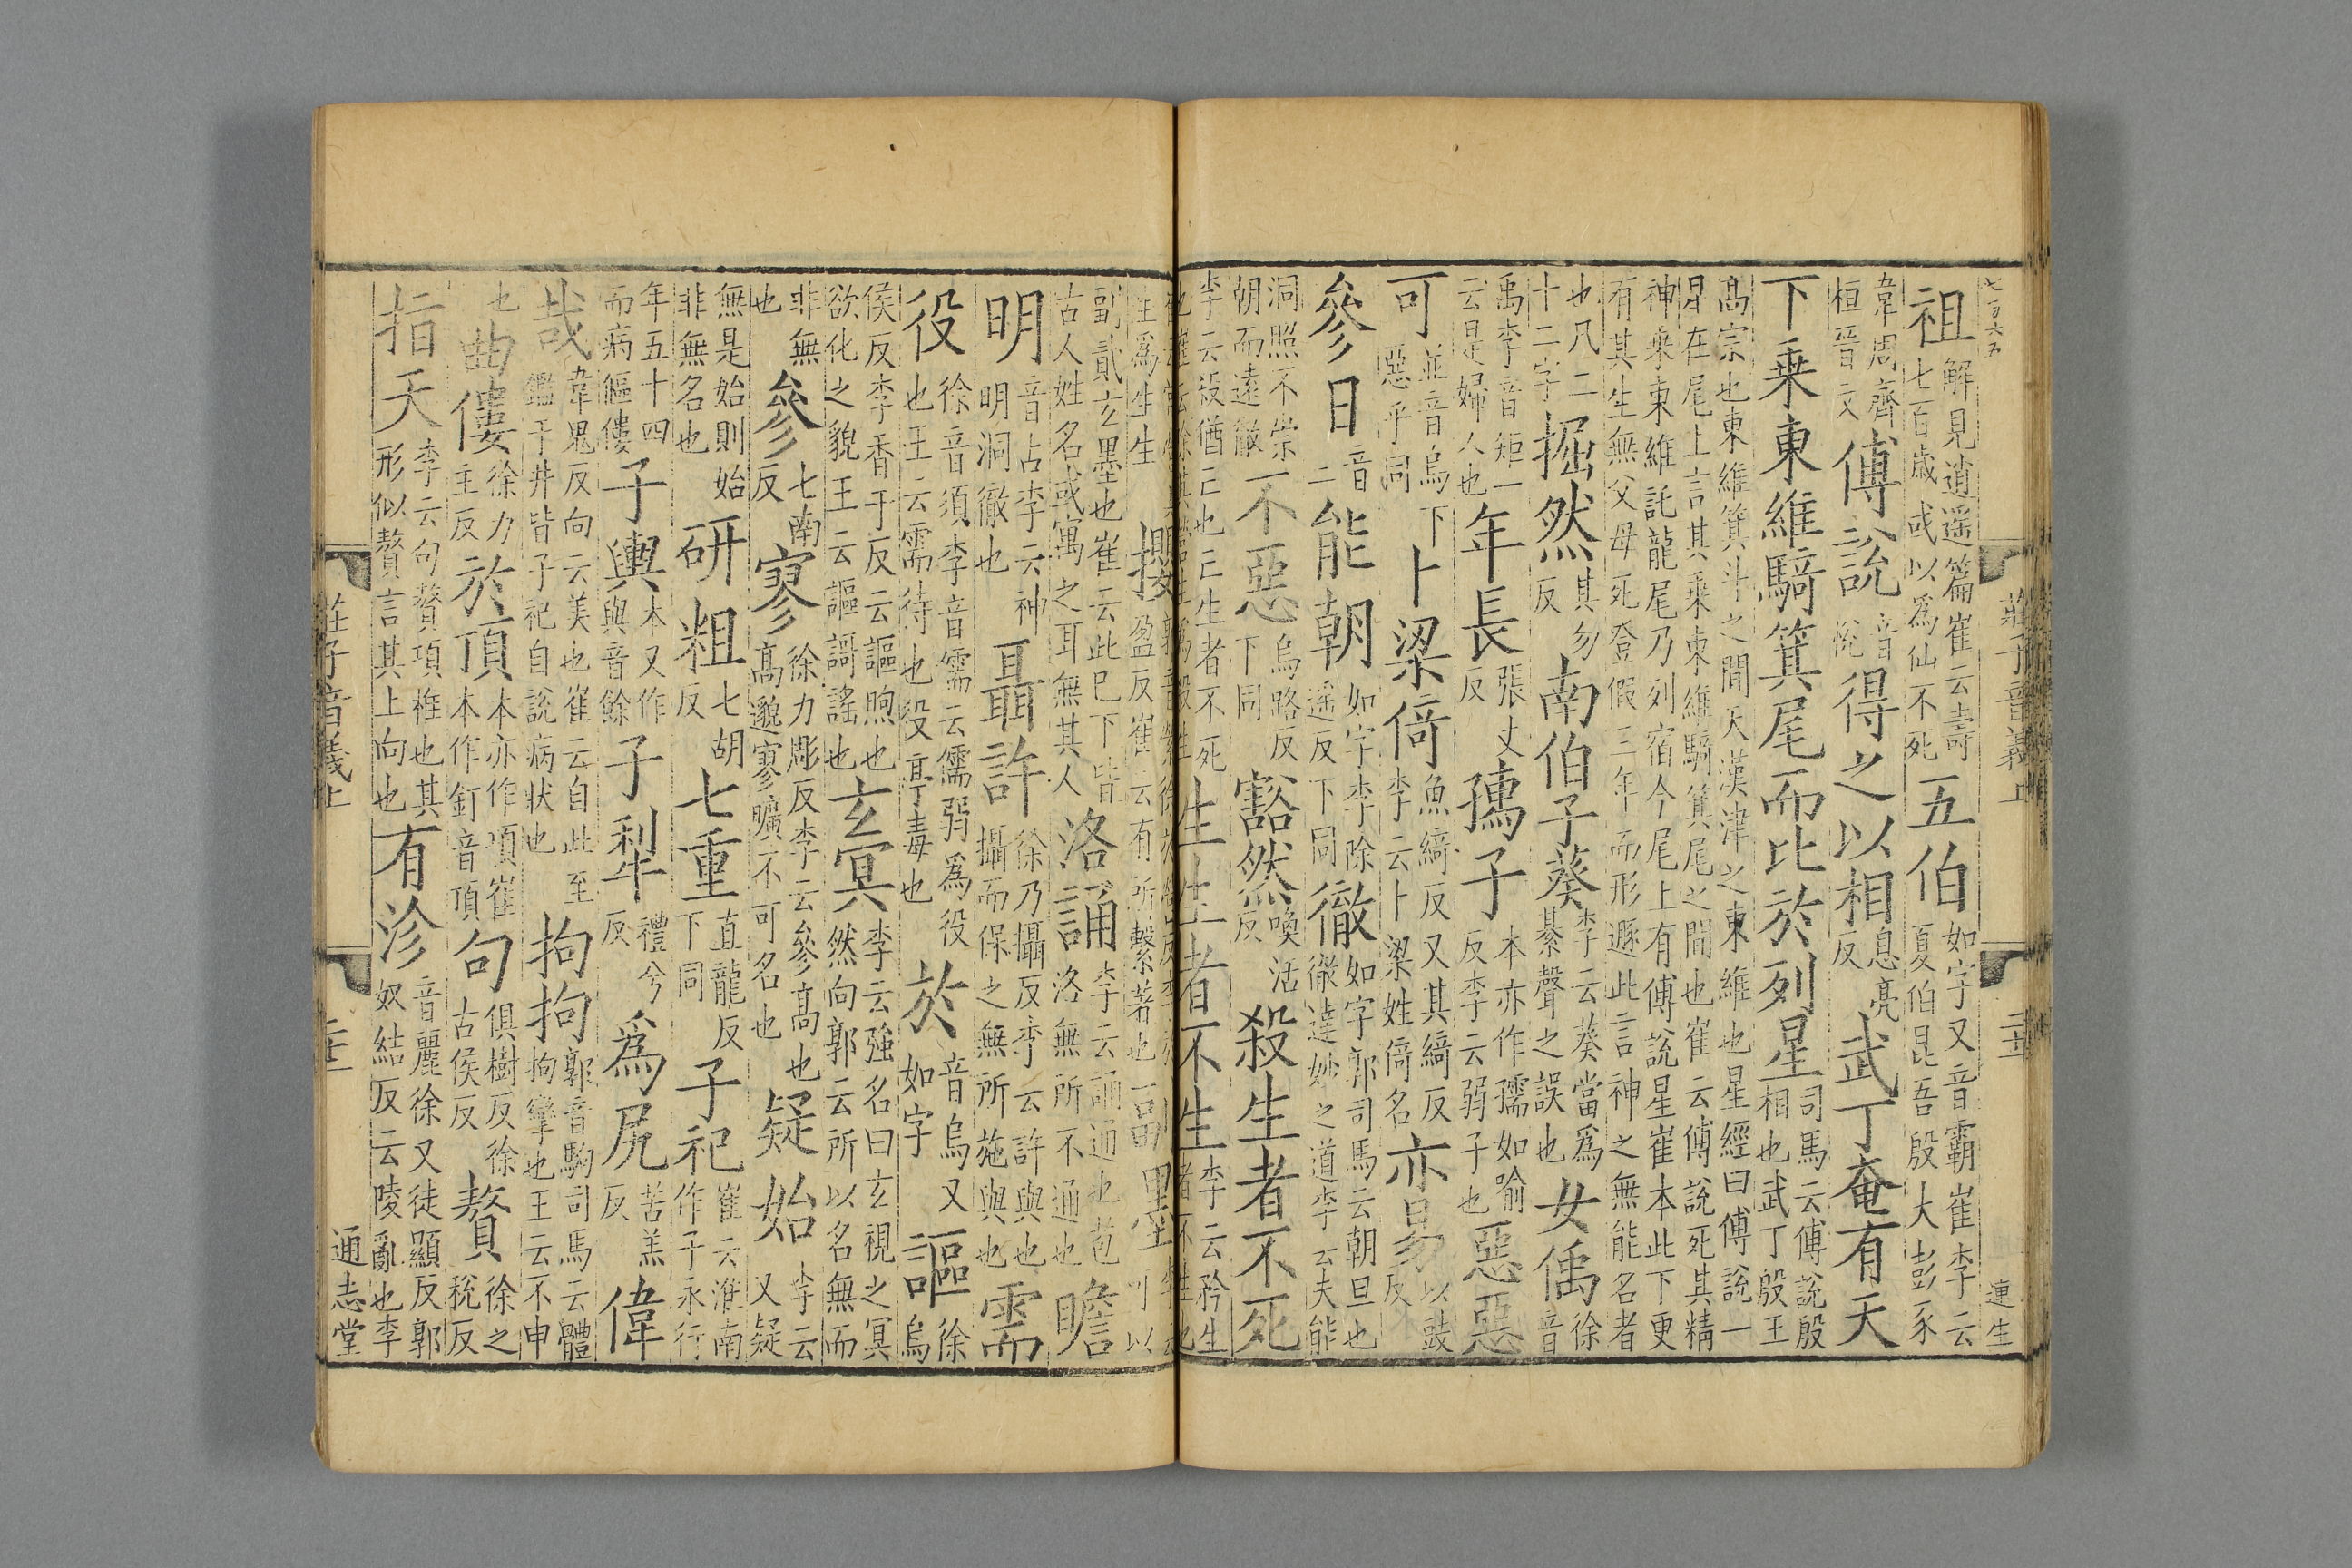 莊子音義上
連生
祖解見逍遥篇崔云壽七百歲或以爲仙不死五伯如字又音霸崔李云夏伯昆吾殷大彭豕
韋周齊桓晉文傅說音悅得之以相息亮反武丁奄有天
下乗東維騎箕尾而比於列星司馬云傅說殷相也武丁殷王
高宗也東維箕斗之間天漢津之東維也星經曰傅說一星在尾上言其乗東維騎箕尾之間也崔云傅說死其精
神乗東維託龍尾乃列宿今尾上有傅說星崔本此下更有其生無父母死登假三年而形遯此言神之無能名者
也凡二十二字掘然其勿反南伯子葵李云葵當爲綦聲之誤也女偊徐音
禹李音矩一云是婦人也年長張丈反孺子本亦作孺如喻反李云弱子也惡惡
可並音烏下惡乎同卜梁倚魚綺反又其綺反李云卜梁姓倚名亦易以豉反
參日音二能朝如字李除遥反下同徹如字郭司馬云朝旦也徹達妙之道李云夫能
洞照不崇朝而遠徹不惡烏路反下同豁然喚活反殺生者不死
李云殺猶亡也亡生者不死生生者不生李云矜生者不生也
攖盈反崔云有所繫著也
副貳玄墨也崔云此已下皆古人姓名或寓之耳無其人洛誦李云誦通也苞洛無所不通也瞻
明音占李云神明洞徹也聶許徐乃攝反李云許與也攝而保之無所施與也需
役徐音須李音儒云儒弱爲役也王云需待也役亭毒也於音烏又如字謳徐烏
侯反李香于反云謳煦也欲化之貌王云謳謌謠也玄冥李云強名曰玄視之冥然向郭云所以名無而
非無也參七南反寥徐力彫反李云參高也高邈寥曠不可名也疑始李云又疑
無是始則始非無名也研粗七胡反七重直龍反下同子祀崔云淮南作子永行
年五十四而病傴僂子輿本又作與音餘子犁禮兮反爲尻苦羔反偉
哉韋鬼反向云美也崔云自此至鑑于井皆子祀自說病狀也拘拘郭音駒司馬云體拘攣也王云不申
也曲僂徐力主反於頂本亦作項崔本作釘音頂句俱樹反徐古侯反贅徐之稅反
指天李云句贅項椎也其形似贅言其上向也有沴音麗徐又徒顯反郭奴結反云陵亂也李
莊子音義上
通志堂